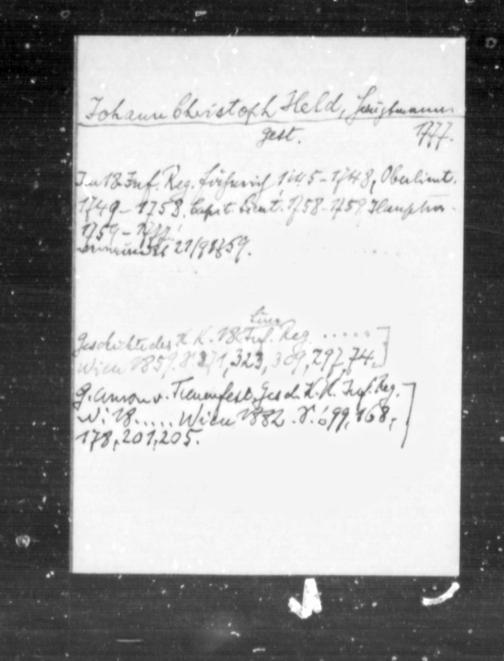 Johann Christoph Held, Hauptmann
gest. 1777.
Im 18 Inf. Reg. Fähnrich 1745-1748, Oberlieut.
1749-1758, Capit. Lieut. 1758-1759, Hauptm.
1759-
verwundet 21/9 1759.
Linien
Geschichte des K. K. 18 Inf. Reg. .....
Wien 1859. S. 271, 323, 309, 297, 74.
G. Amon v. Treuenfest, Gesch. K. K. Inf. Reg.
N: 18..... Wien 1882. S. 699, 168,
178, 201, 205.